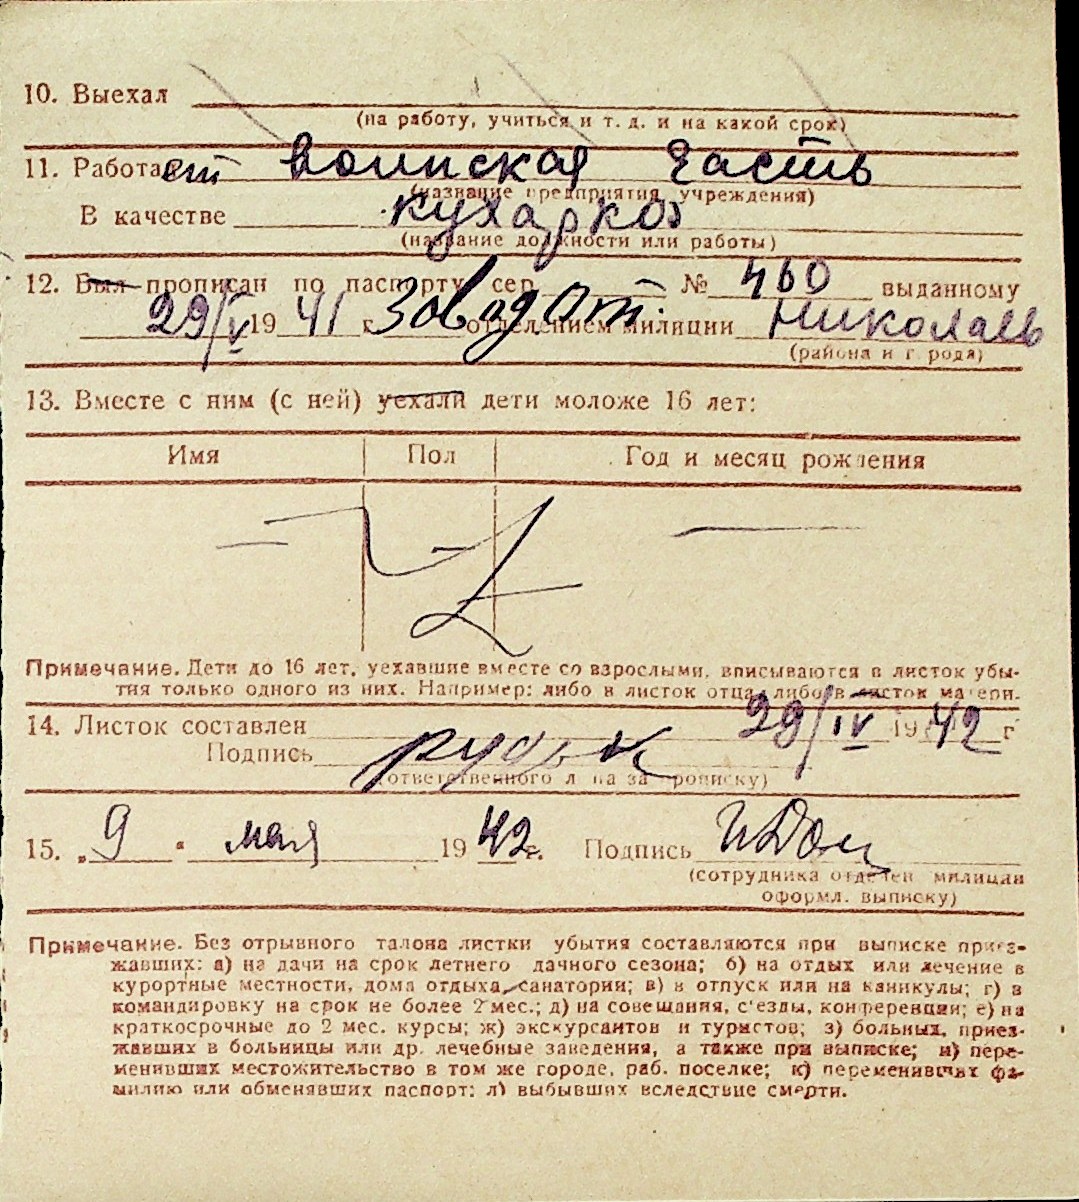 10. Выехал
(на работу, учиться и т. д. и на какой срок)
11. Работает воинская часть
(название предприятия, учреждения)
В качестве кухаркой
(название должности или работы)
12. Был прописан по паспорту сер. № 460 выданному
29/V 1941 г. отделением милиции Николаев
(района и города)
13. Вместе с ним (с ней) уехали дети моложе 16 лет:
Имя Пол Год и месяц рождения
Примечание. Дети до 16 лет, уехавшие вместе со взрослыми, вписываются в листок убы-
тия только одного из них. Например: либо в листок отца, либо в листок матери.
14. Листок составлен 29/IV 1942 г
Подпись
(ответственного лица за прописку)
15. „9" мая 1942 г. Подпись
(сотрудника отделен. милиции
оформл. выписку)
Примечание. Без отрывного талона листки убытия составляются при выписке приез-
жавших: а) на дачи на срок летнего дачного сезона; б) на отдых или лечение в
курортные местности, дома отдыха, санатории; в) в отпуск или на каникулы; г) в
командировку на срок не более 2 мес.; д) на совещания, с'езды, конференции; е) на
краткосрочные до 2 мес. курсы; ж) экскурсантов и туристов; з) больных, приез-
жавших в больницы или др. лечебные заведения, а также при выписке; и) пере-
менивших местожительство в том же городе, раб. поселке; к) переменивших фа-
милию или обменявших паспорт; л) выбывших вследствие смерти.